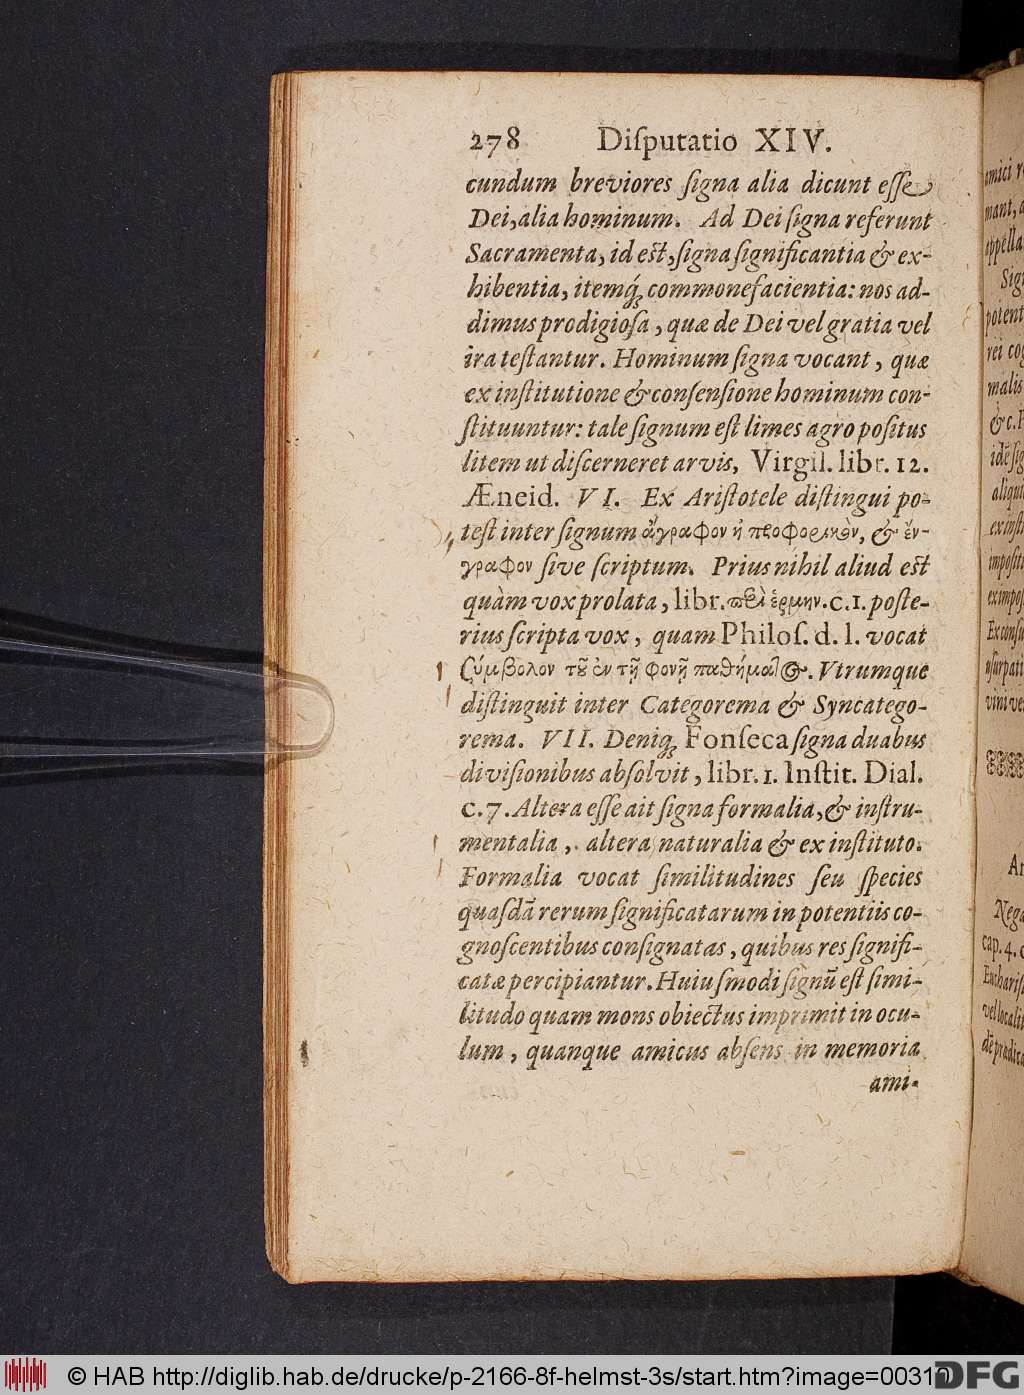 278 Diſputatio XIV.
cundum breviores ſigna alia dicunt eſſe
Dei, alia hominum. Ad Dei ſigna referunt
Sacramenta, id eſt, ſigna ſignificantia & ex-
hibentia, itemq́; commonefacientia: nos ad-
dimus prodigioſa, quæ de Dei vel gratia vel
ira teſtantur. Hominum ſigna vocant, quæ
ex inſtitutione & conſenſione hominum con-
ſtituuntur: tale ſignum eſt limes agro poſitus
litem ut diſcerneret arvis, Virgil. libr. 12.
Æneid. VI. Ex Ariſtotele diſtingui po-
teſt inter ſignum ἄγραφον ἢ προφορικὸν, & ἔν-
γραφον ſive ſcriptum. Prius nihil aliud eſt
quàm vox prolata, libr. περὶ ἑρμην. c. 1. poſte-
rius ſcripta vox, quam Philoſ. d. l. vocat
ζύμβολον τοῦ ἐν τῇ φονῇ παθήματος. Vtrumque
diſtinguit inter Categorema & Syncatego-
rema. VII. Deniq; Fonſeca ſigna duabus
diviſionibus abſolvit, libr. 1. Inſtit. Dial.
c. 7. Altera eſſe ait ſigna formalia, & inſtru-
mentalia, altera naturalia & ex inſtituto.
Formalia vocat ſimilitudines ſeu ſpecies
quaſdã rerum ſignificatarum in potentiis co-
gnoſcentibus conſignatas, quibus res ſignifi-
catæ percipiantur. Huiuſmodi ſignũ eſt ſimi-
litudo quam mons obiectus imprimit in ocu-
lum, quanque amicus abſens in memoria
ami-
amici
mant,
appella
Sig
potent
rei cog
malis
&c.
idẽ ſig
aliqui
ex inſti
impoſiti
ex impoſ
Ex conſu
uſurpati
vini ve
Nega
cap. 4.
Euchariſ
vel localit
dẽ prædica
© HAB http://diglib.hab.de/drucke/p-2166-8f-helmst-3s/start.htm?image=00310
DFG